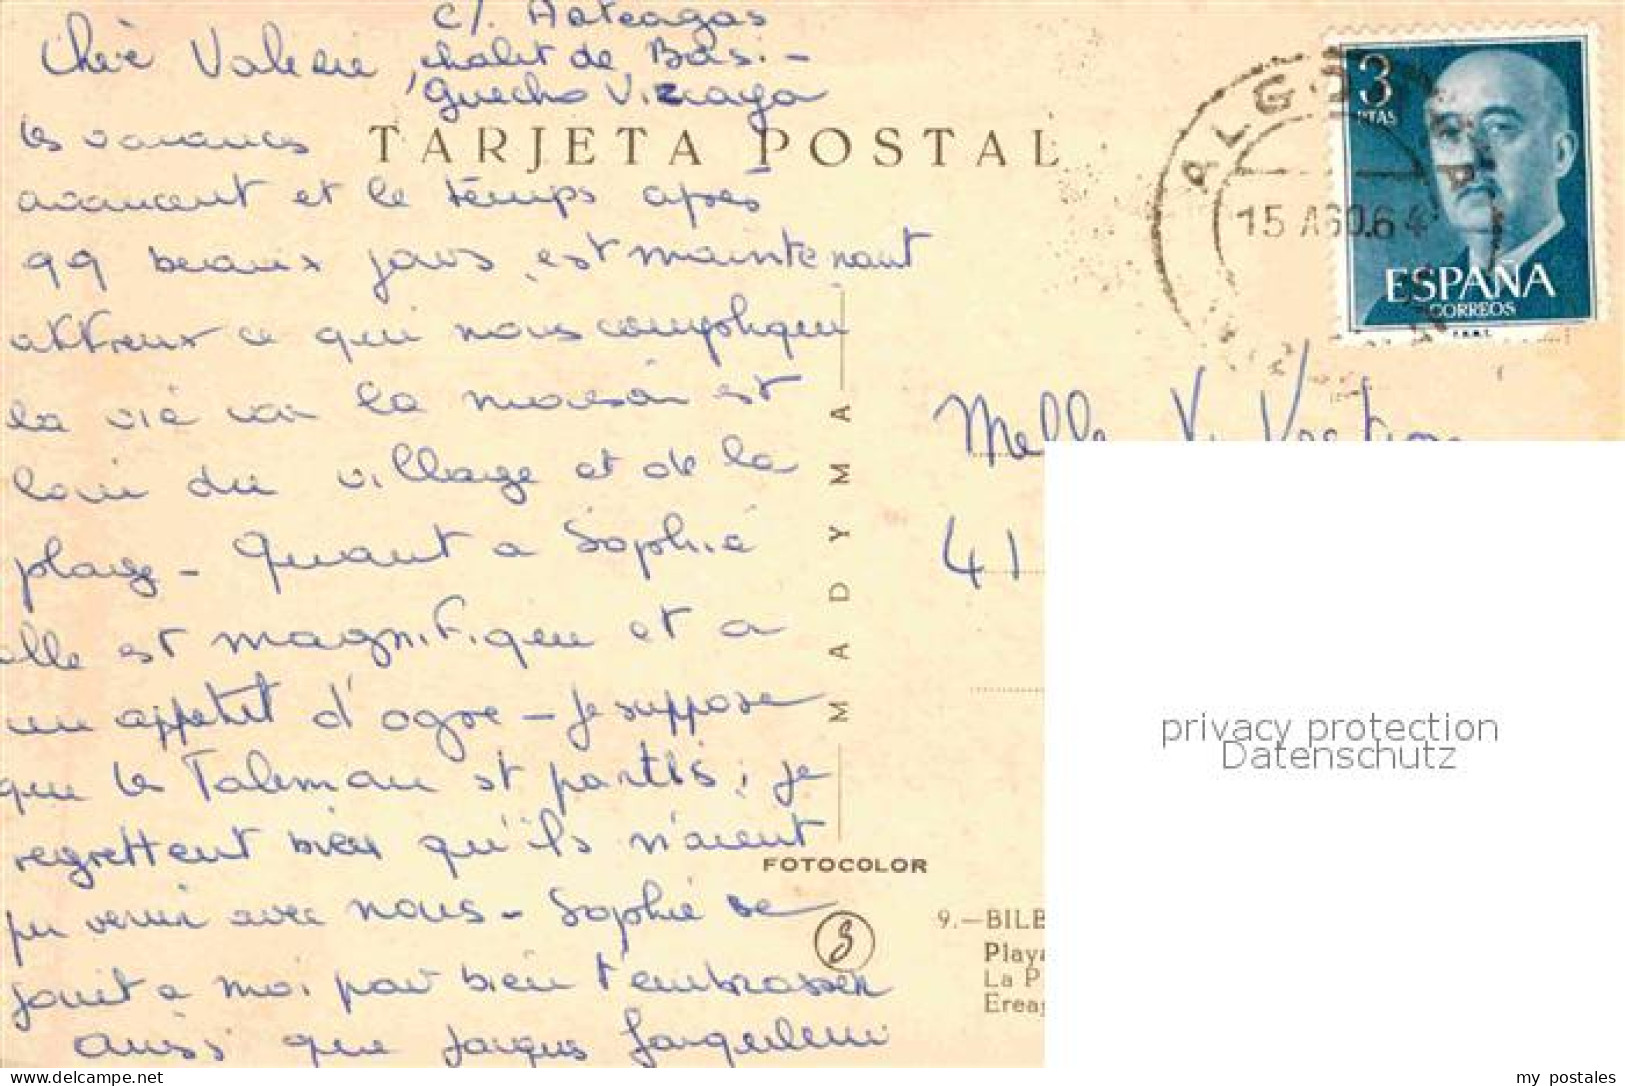 c/. Arteagas
Chère Valerie, chalet de Basi -
Guecho Vizcaya
TARJETA POSTAL
les vacances
avancent et le temps après
99 beaux jours, est maintenant
affreux ce qui nous complique
la vie car la maison est
loin du village et de la
plage - Quant a Sophie
elle est magnifique et a
un appetit d'ogre - Je suppose
que les Taleman st partis ; je
regrettent bien qu'ils n'aient
pu venir avec nous - Sophie se
joint a moi pour bien t'embrasser
ainsi que Jacques
MADYMA
FOTOCOLOR
3
ALGORTA
15 AGO.64
3
PTAS
ESPAÑA
CORREOS
F.N.M.T.
Melle V.
41
privacy protection
Datenschutz
9.—BILB
Playa
La P
Ereag
my postales
ID: 1182195105 | www.delcampe.net